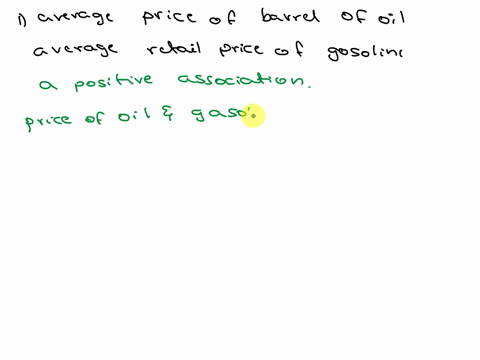 1) average price of barrel of oil
average retail price of gasolin
a positive association.
price of oil & gaso